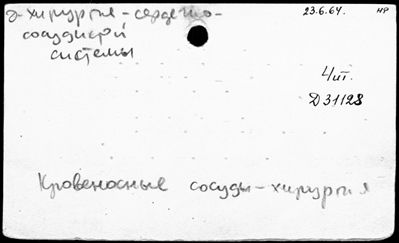 г-хирургия-сердечно-
сосудистой
системы
23.6.64. НР
4шт.
Д31128
Кровеносные сосуды-хирургия